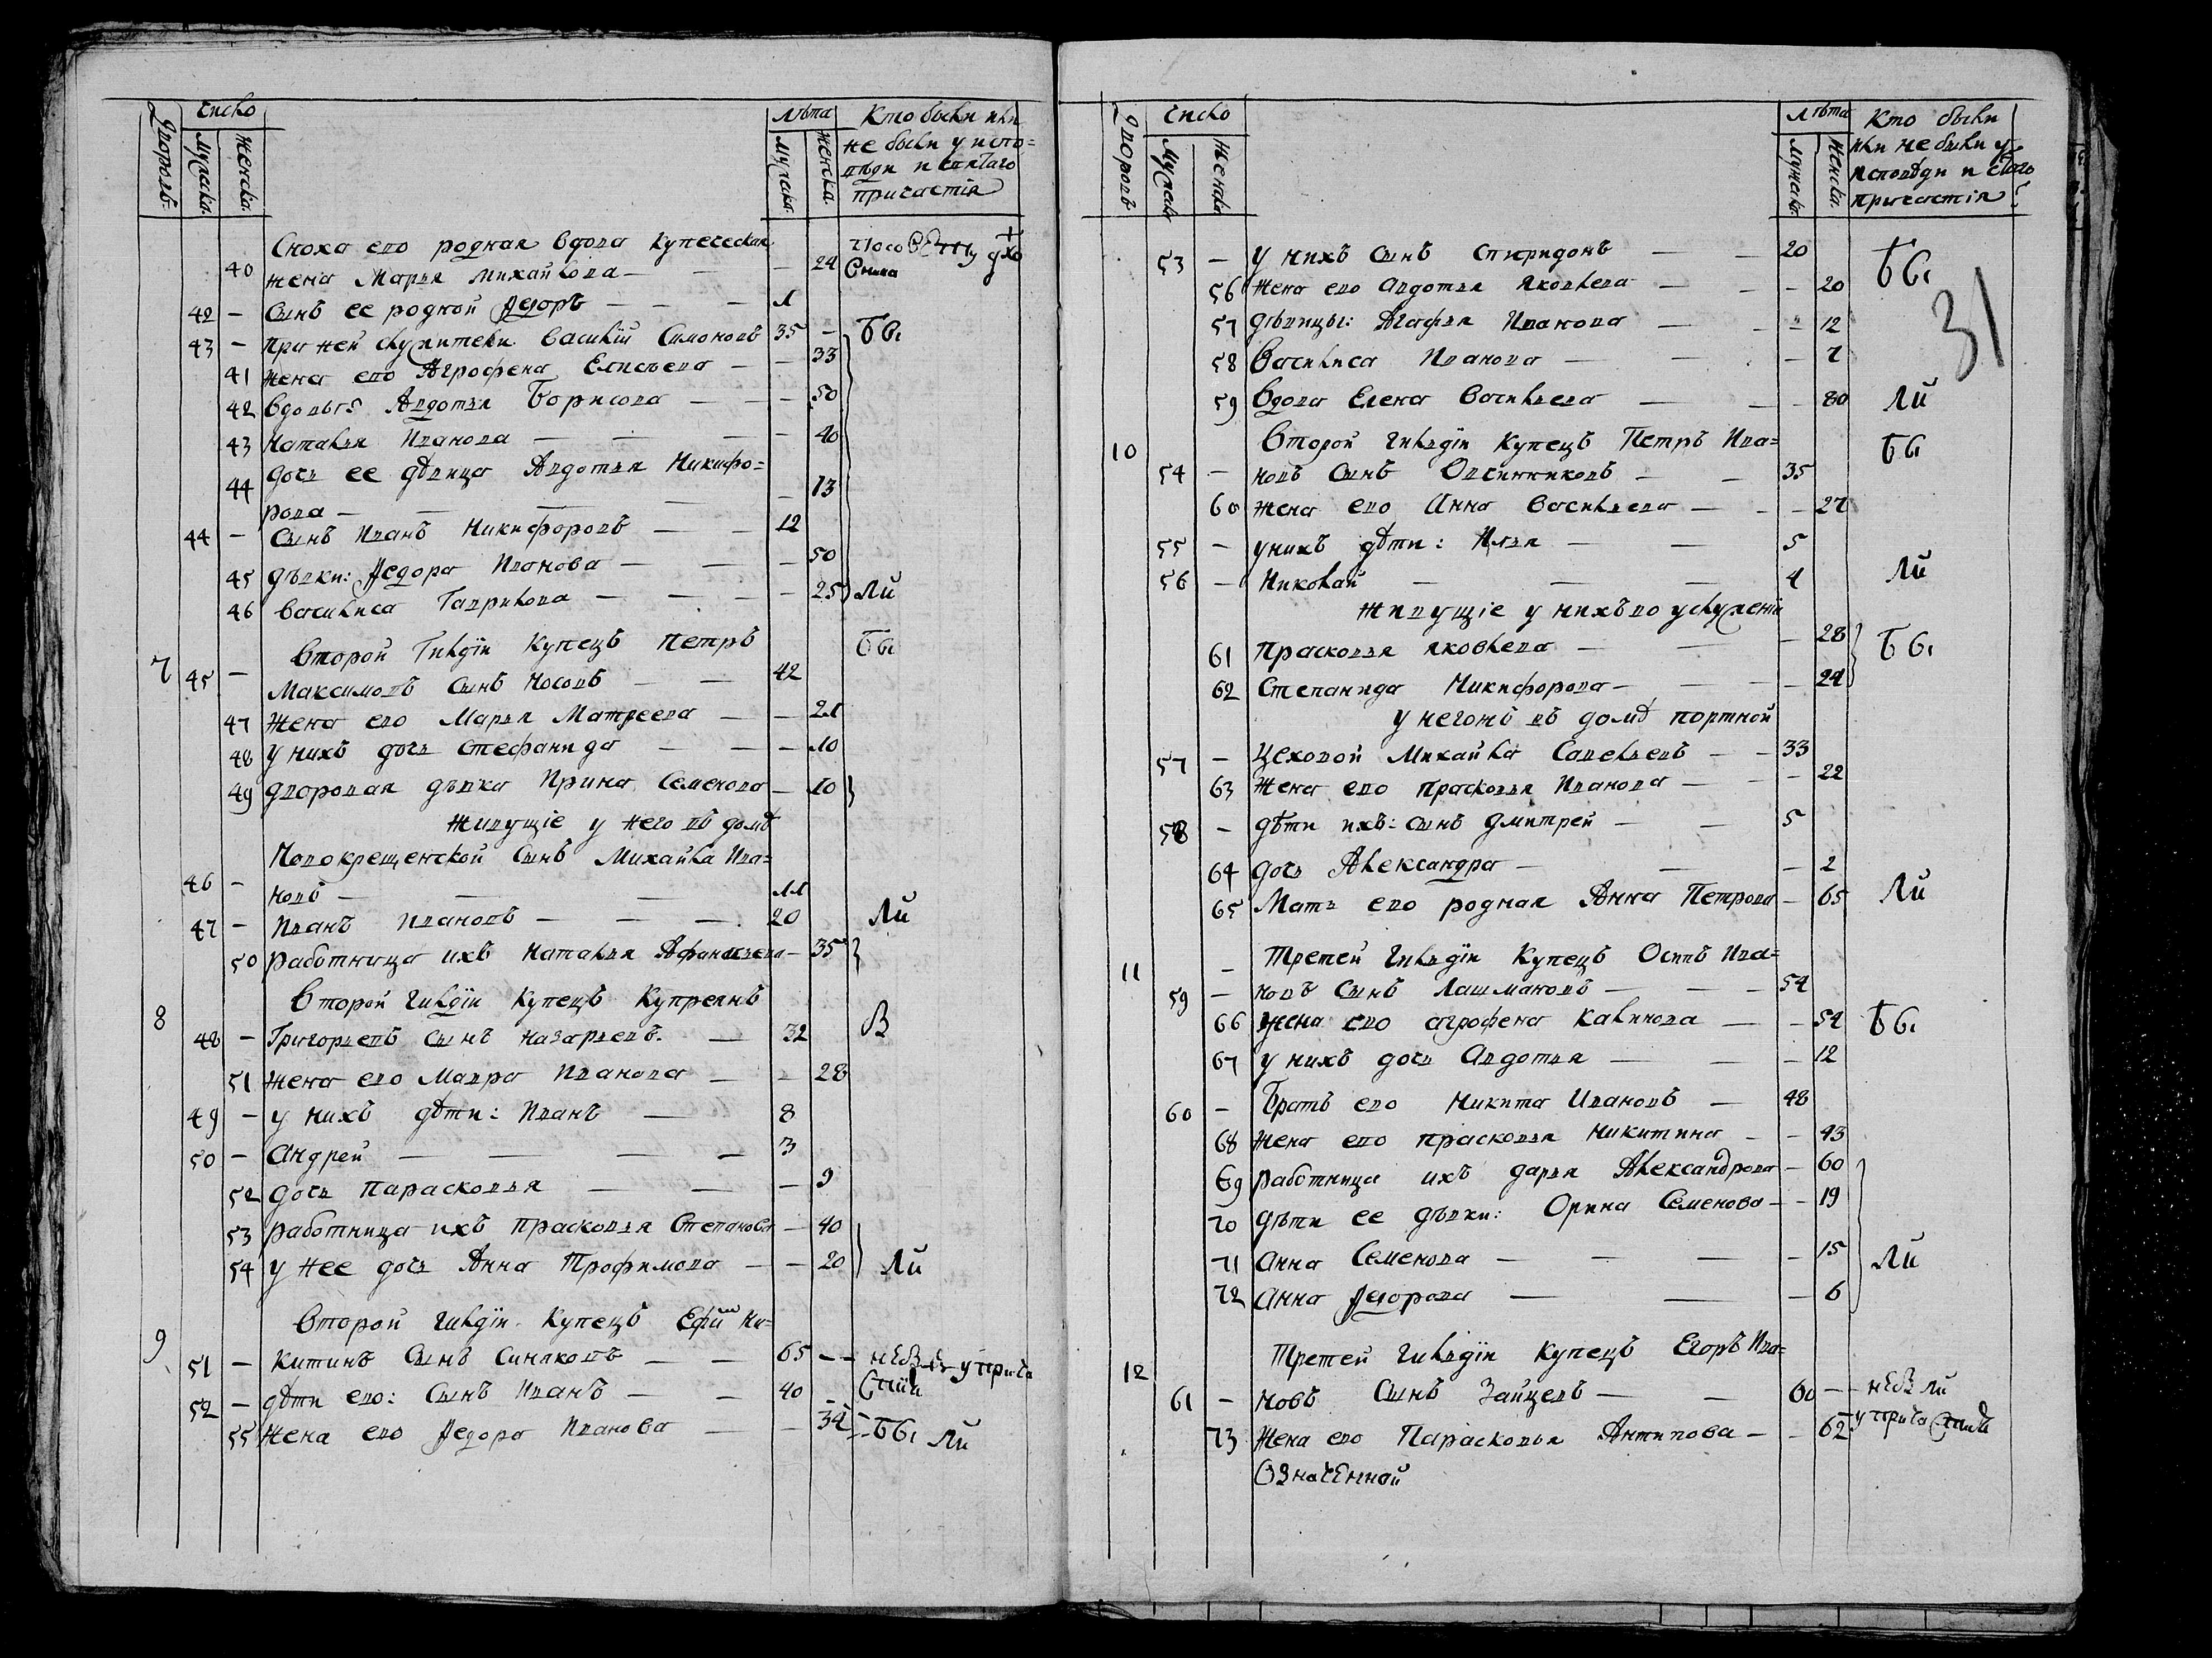 Дворовъ
Число
Мужеска.
Женска.
Лѣта
Мужеска.
Женска.
Кто были или
не были у испо=
вѣди и святаго
причастія
Сноха его родная вдова купеческая
40 жена Марья Михайлова — — 24
42 — Сынъ ее родной Федоръ — — — 1
43 — При ней служители Василій Симоновъ 35 — Бы
41 Жена его Агрофена Елисѣева — — 33
42 Вдовы: Авдотья Борисова — — — 50
43 Наталья Иванова — — — 40
44 Дочь ее дѣвица Авдотья Никифо= — 13
рова — — —
44 — Сынъ Иванъ Никифоровъ — — 12
45 Дѣвки: Федора Иванова — — — 50
46 Василиса Гаврилова — — — — 25 ли
Второй Гилдіи Купецъ Петръ Бы
7 45 — Максимовъ Сынъ Носовъ — — 42
47 Жена его Марья Матвеева — — 21
48 У нихъ дочь Стефанида — — — 10
49 Дворовая дѣвка Ирина Семенова — 10
Живущіе у него въ домѣ
Новокрещенской Сынъ Михайла Ива=
46 — новъ — — — 11
47 — Иванъ Ивановъ — — — 20 ли
50 Работница ихъ Наталья Афанасьева — 35
Второй Гилдіи Купецъ Купреянъ
8 48 — Григорьевъ Сынъ Назарьевъ. — 32 В
51 Жена его Мавра Иванова — — 28
49 — У нихъ дѣти: Иванъ — 8
50 — Андрей — — — — 3
52 Дочь Парасковья — — — 9
53 Работница ихъ Прасковья Степанова — 40
54 У нее дочь Анна Трофимова — — 20 ли
Второй Гилдіи Купецъ Ефим Ни=
9 51 — китинъ Сынъ Синяковъ — — 65 — —
52 — Дѣти его: Сынъ Иванъ — — 40
55 Жена его Федора Иванова — — 34 Бы ли
Дворовъ
Число
Мужеска
Женска
Лѣта
Мужеска
Женска.
Кто были
или не были у
исповѣди и стаго
причастія
31
53 — У нихъ Сынъ Спиридонъ — — 20 Бы
56 Жена его Авдотья Яковлева — — — 20
57 Дѣвицы: Агафья Иванова — — — 12
58 Василиса Иванова — — — 7
59 Вдова Елена Васильева — — — 80 ли
10 Второй Гильдіи Купецъ Петръ Ива= Бы
54 — новъ Сынъ Овсинниковъ — — 35
60 Жена его Анна Васильева — — — 27
55 — У нихъ дѣти: Илья — — 5
56 — Николай — — — 4 ли
Живущіе у нихъ во услуженіи
61 Прасковья Яковлева — — — 28 Бы
62 Степанида Никифорова — — — 24
У негожъ въ домѣ портной
57 — Цеховой Михайла Савельевъ — — 33
63 Жена его Прасковья Иванова — — 22
58 — Дѣти ихъ: Сынъ Дмитрей — — 5
64 Дочь Александра — — — 2
65 Мать его родная Анна Петрова — 65 ли
11 — Третей Гильдіи Купецъ Осипъ Ива=
59 — новъ Сынъ Лашмановъ — — — 54
66 Жена его Агрофена Калинова — — 54 Бы
67 У нихъ дочь Авдотья — — — 12
60 — Братъ его Никита Ивановъ — 48
68 Жена его Прасковья Никитина — — 43
69 Работница ихъ Дарья Александрова — 60
70 Дѣти ее дѣвки: Орина Семенова — — 19
71 Анна Семенова — — — — 15 ли
72 Анна Федорова — — — 6
12 Третей Гильдіи Купецъ Егоръ Ива=
61 — новъ Сынъ Зайцевъ — — 60 — —
73 Жена его Парасковья Антипова — — 62
Означенной